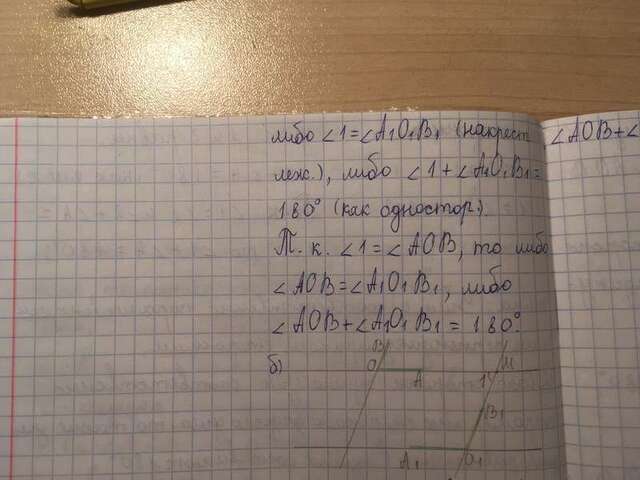 либо ∠1=∠A₁O₁B₁ (накрест
леж.), либо ∠1+∠A₁O₁B₁=
180° (как одностор).
Т. к. ∠1=∠AOB, то либо
∠AOB=∠A₁O₁B₁, либо
∠AOB+∠A₁O₁B₁=180°.
∠AOB+∠
б)
B
O
A
M
1
B₁
A₁
O₁